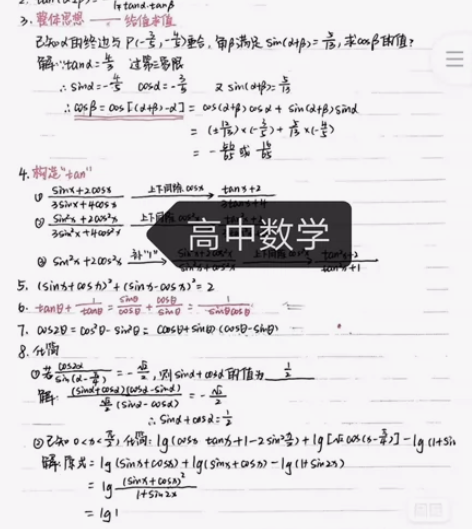 3. 整体思想 —— 给值求值
已知α的终边与P(-3/5, -4/5)重合, 角β满足 sin(α+β)=5/13, 求cosβ的值?
解: ∵tanα=4/3 过第三象限
∴sinα=-4/5 cosα=-3/5 又 sin(α+β)=5/13
∴cosβ=cos[(α+β)-α]=cos(α+β)cosα+sin(α+β)sinα
=(±12/13)×(-3/5)+5/13×(-4/5)
=-56/65或16/65
4. 构造"tan"
① (sinx+2cosx)/(3sinx+4cosx) 上下同除cosx → (tanx+2)/(3tanx+4)
② (sin²x+2cos²x)/(3sin²x+4cos²x) 上下同除
高中数学
③ sin²x+2cos²x 补"1" → tan²x+1
5. (sinx+cosx)²+(sinx-cosx)²=2
6. tanθ+1/tanθ=sinθ/cosθ+cosθ/sinθ=1/(sinθcosθ)
7. cos2θ=cos²θ-sin²θ=(cosθ+sinθ)(cosθ-sinθ)
8. 化简
①若 cos2α/sin(α-π/4)=-√2/2, 则sinα+cosα的值为 1/2
解: (sinα+cosα)(cosα-sinα)/(√2/2(sinα-cosα))=-√2/2
∴sinα+cosα=1/2
②已知0<x<π/2, 化简: lg(cosx tanx+1-2sin²x/2)+lg[√2cos(x-π/4)]-lg(1+sin
解: 原式=lg(sinx+cosx)+lg(sinx+cosx)-lg(1+sin2x)
=lg (sinx+cosx)²/(1+sin2x)
=lg1